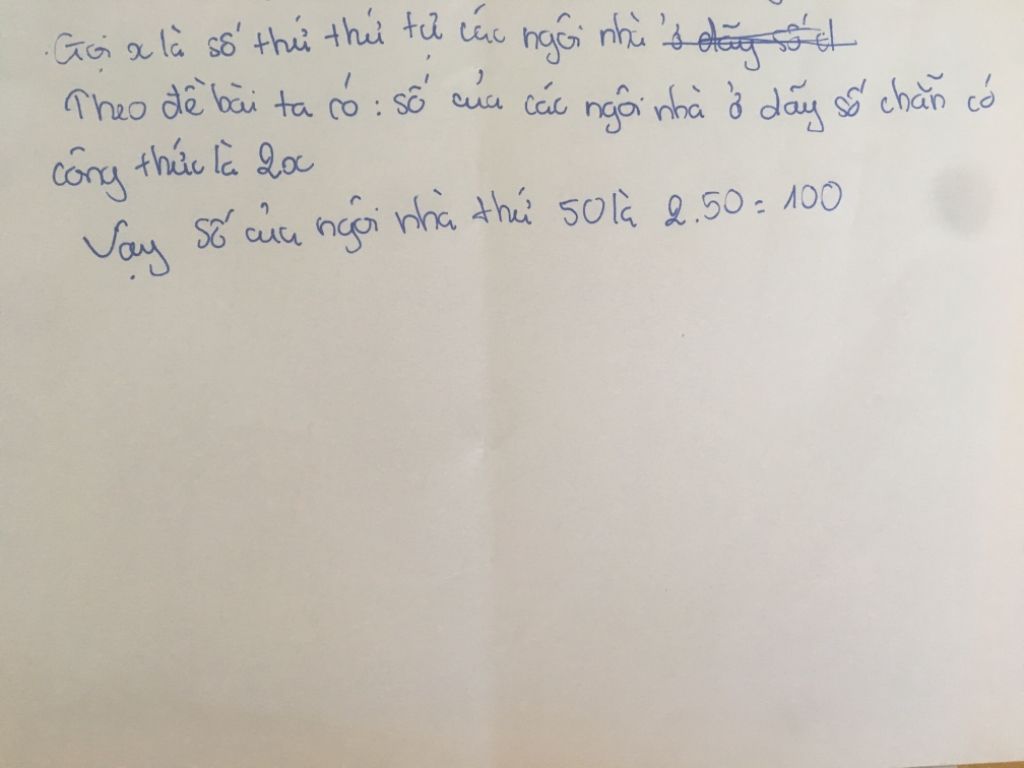 Gọi x là số thứ thứ tự các ngôi nhà ở dãy số cl
Theo đề bài ta có : số của các ngôi nhà ở dãy số chẵn có
công thức là 2x
Vậy số của ngôi nhà thứ 50 là 2.50 = 100